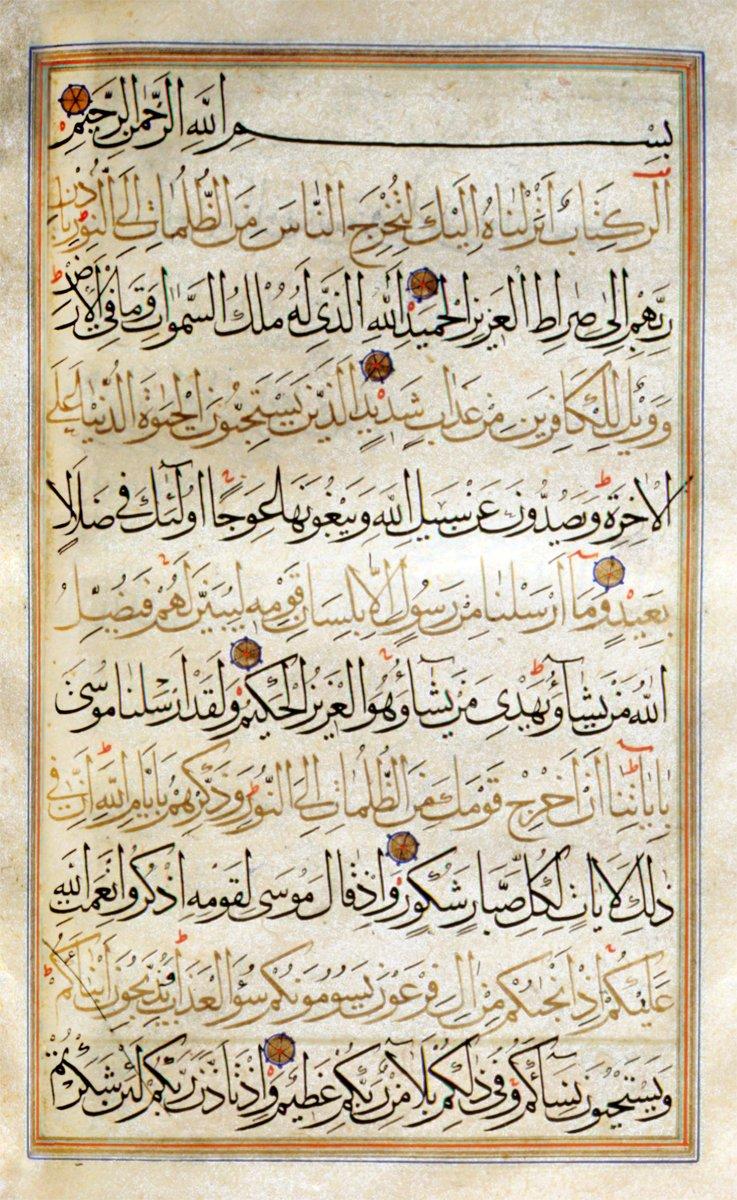 بِسْمِ اللهِ الرَّحْمٰنِ الرَّحِيمِ
الٓرٰ كِتَابٌ اَنْزَلْنَاهُ اِلَيْكَ لِتُخْرِجَ النَّاسَ مِنَ الظُّلُمَاتِ اِلَى النُّورِ بِاِذْنِ
رَبِّهِمْ اِلىٰ صِرَاطِ الْعَزِيزِ الْحَمِيدِ اَللهِ الَّذِى لَهُ مُلْكُ السَّمٰوَاتِ وَمَا فِى الْاَرْضِ
وَوَيْلٌ لِلْكَافِرِينَ مِنْ عَذَابٍ شَدِيدٍ الَّذِينَ يَسْتَحِبُّونَ الْحَيٰوةَ الدُّنْيَا عَلَى
الْاٰخِرَةِ وَيَصُدُّونَ عَنْ سَبِيلِ اللهِ وَيَبْغُونَهَا عِوَجًا اُولٰٓئِكَ فِى ضَلَالٍ
بَعِيدٍ وَمَٓا اَرْسَلْنَا مِنْ رَسُولٍ اِلَّا بِلِسَانِ قَوْمِهِ لِيُبَيِّنَ لَهُمْ فَيُضِلُّ
اللهُ مَنْ يَشَٓاءُ وَيَهْدِى مَنْ يَشَٓاءُ وَهُوَ الْعَزِيزُ الْحَكِيمُ وَلَقَدْ اَرْسَلْنَا مُوسىٰ
بِاٰيَاتِنَٓا اَنْ اَخْرِجْ قَوْمَكَ مِنَ الظُّلُمَاتِ اِلَى النُّورِ وَذَكِّرْهُمْ بِاَيَّامِ اللهِ اِنَّ فِى
ذٰلِكَ لَاٰيَاتٍ لِكُلِّ صَبَّارٍ شَكُورٍ وَاِذْ قَالَ مُوسىٰ لِقَوْمِهِ اذْكُرُوا نِعْمَتَ اللهِ
عَلَيْكُمْ اِذْ اَنْجٰيكُمْ مِنْ اٰلِ فِرْعَوْنَ يَسُومُونَكُمْ سُٓوءَ الْعَذَابِ وَيُذَبِّحُونَ اَبْنَٓاءَكُمْ
وَيَسْتَحْيُونَ نِسَٓاءَكُمْ وَفِى ذٰلِكُمْ بَلَٓاءٌ مِنْ رَبِّكُمْ عَظِيمٌ وَاِذْ تَاَذَّنَ رَبُّكُمْ لَئِنْ شَكَرْتُمْ